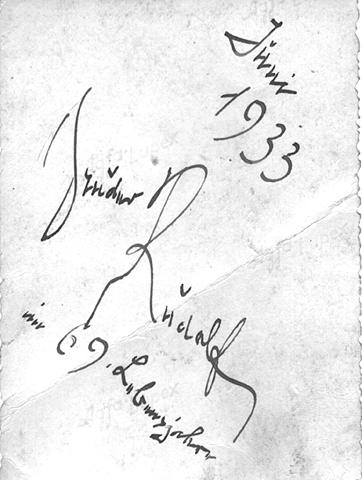 Juni
1933
Bruder
Rudolf
im 69. Lebensjahre